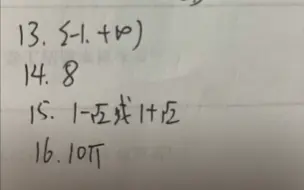 13. [-1. +∞)
14. 8
15. 1-√2或1+√2
16. 10π